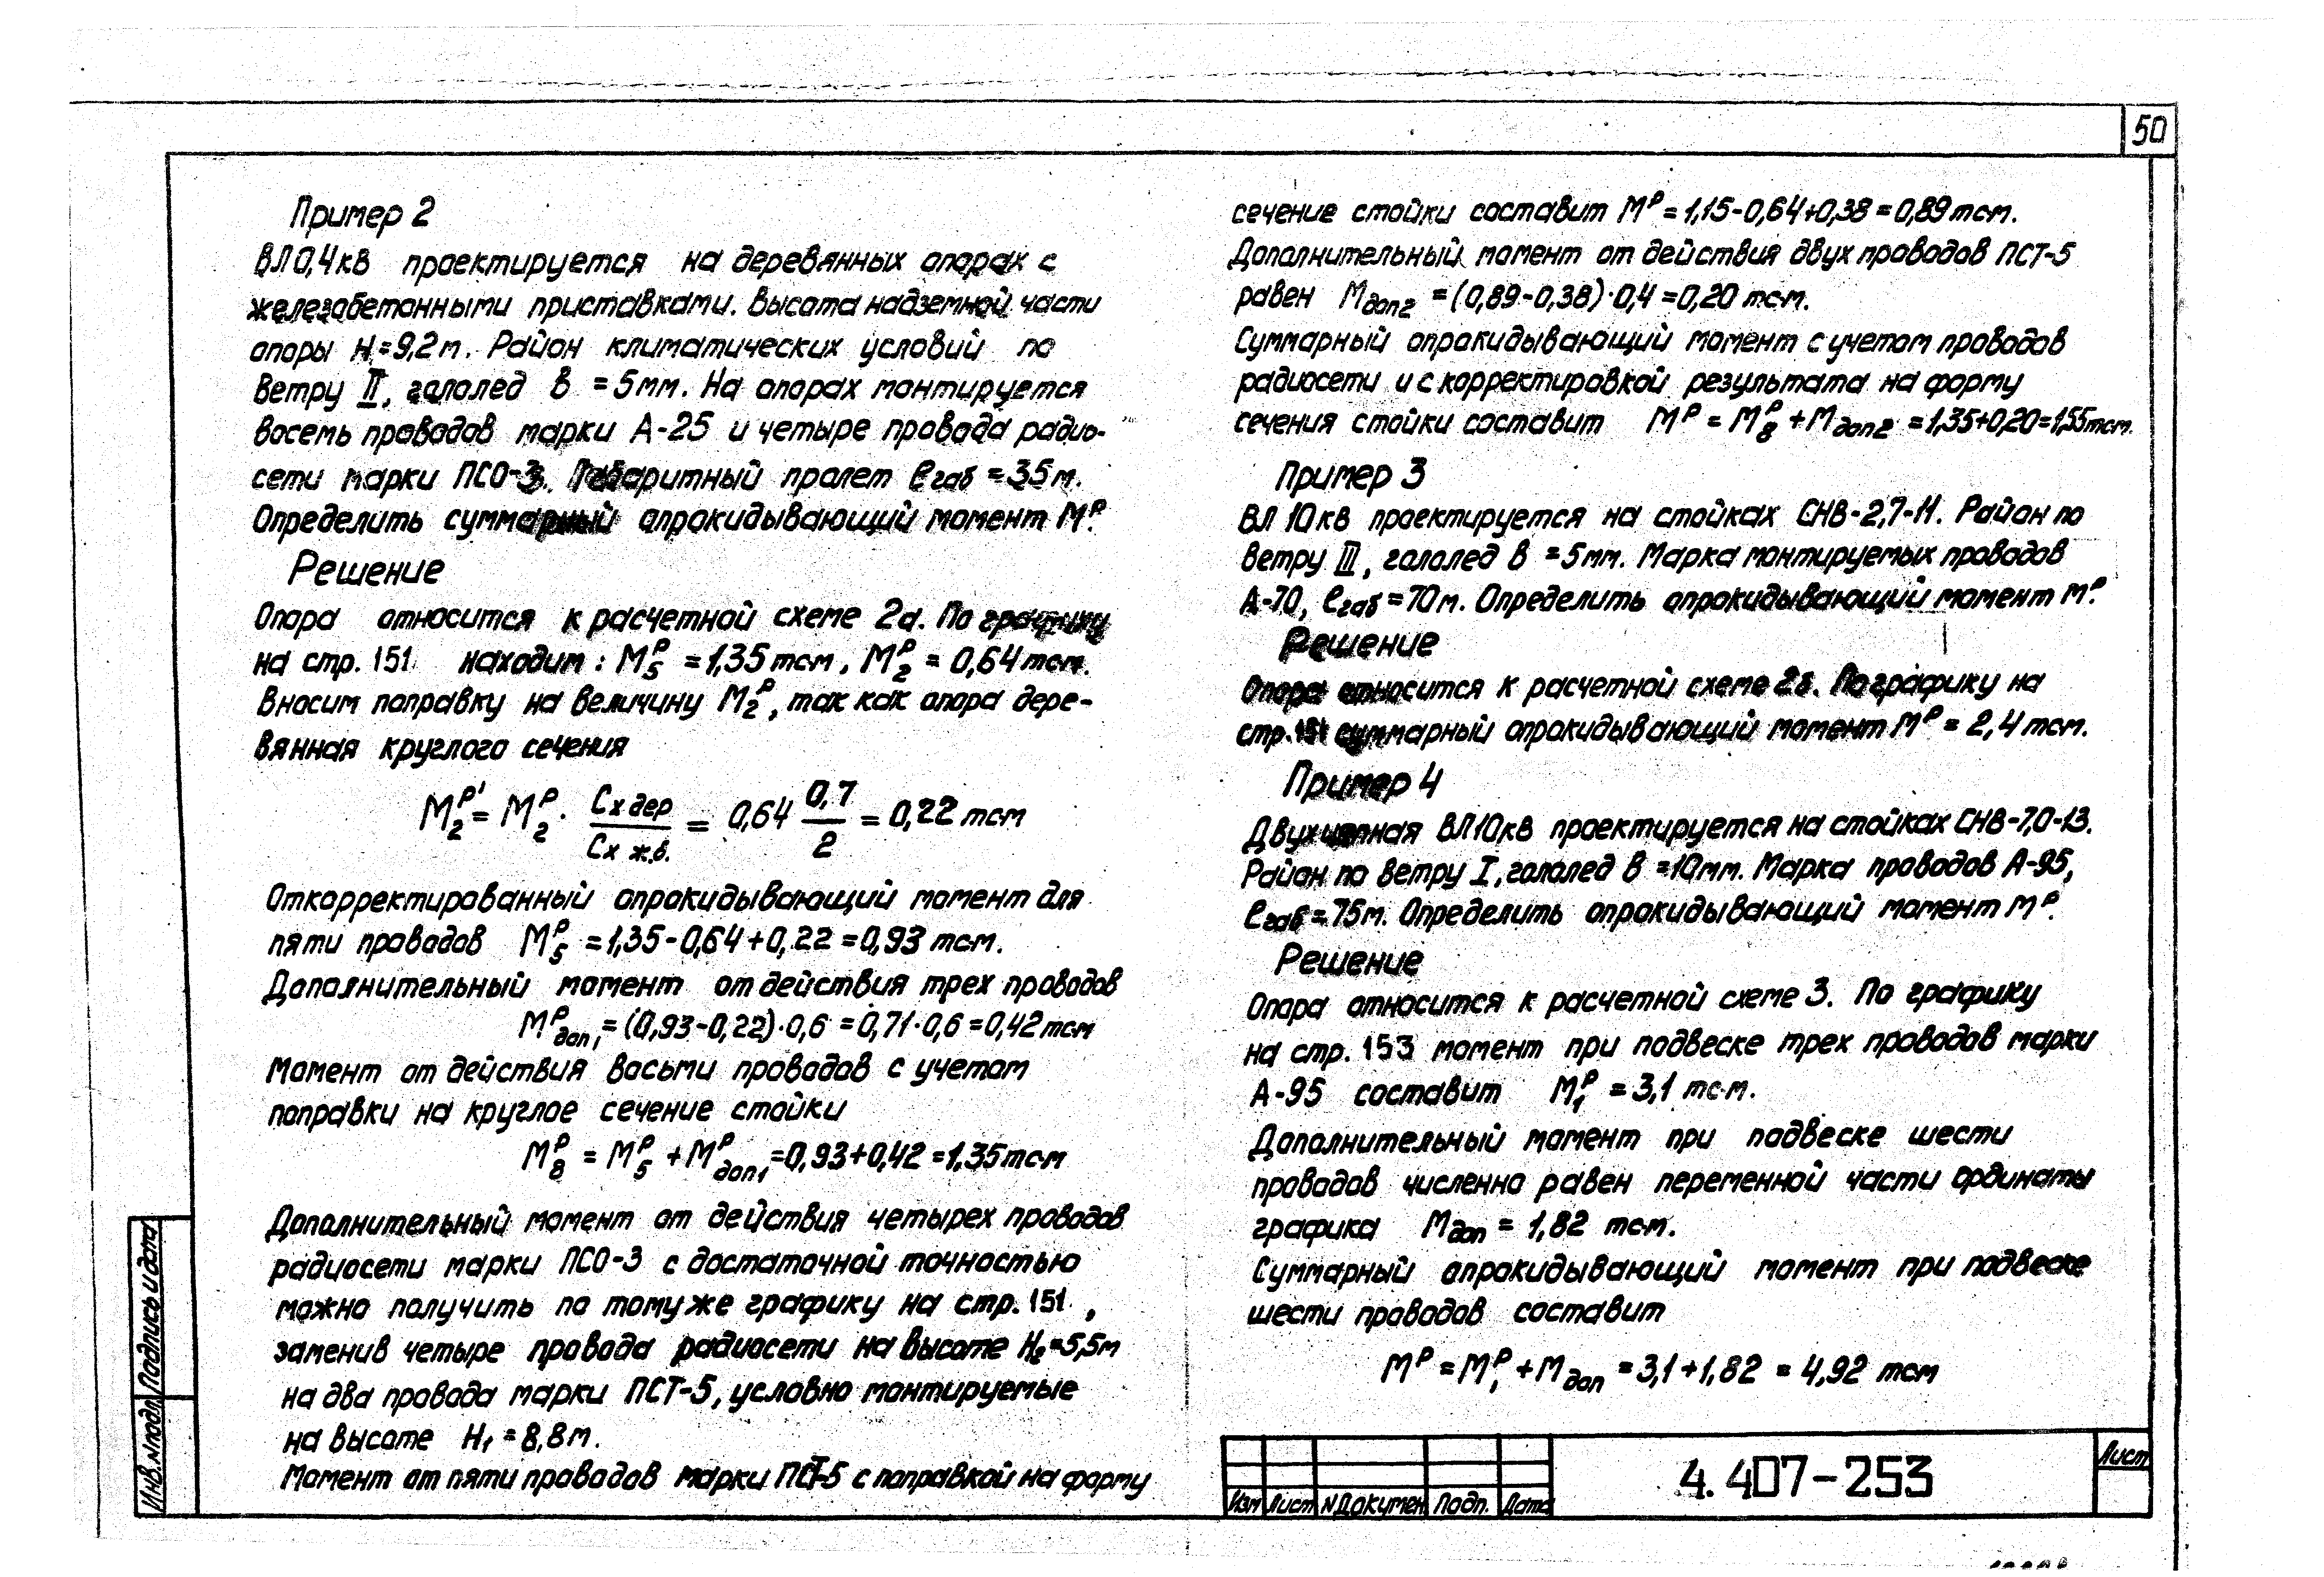 50
Пример 2
ВЛ 0,4 кВ проектируется на деревянных опорах с
железобетонными приставками. Высота надземной части
опоры H=9,2м. Район климатических условий по
ветру II, гололед в = 5мм. На опорах монтируется
восемь проводов марки А-25 и четыре провода радио-
сети марки ПСО-3. Габаритный пролет ℓгаб = 35м.
Определить суммарный опрокидывающий момент Mᵖ.
Решение
Опора относится к расчетной схеме 2а. По графику
на стр. 151 находим: M₅ᵖ = 1,35 тсм, M₂ᵖ = 0,64 тсм.
Вносим поправку на величину M₂ᵖ, так как опора дере-
вянная круглого сечения
M₂ᵖ' = M₂ᵖ · Cх дер / Cх ж.б. = 0,64 0,7 / 2 = 0,22 тсм
Откорректированный опрокидывающий момент для
пяти проводов M₅ᵖ = 1,35-0,64+0,22 = 0,93 тсм.
Дополнительный момент от действия трех проводов
Mᵖдоп₁ = (0,93-0,22)·0,6 = 0,71·0,6 = 0,42 тсм
Момент от действия восьми проводов с учетом
поправки на круглое сечение стойки
M₈ᵖ = M₅ᵖ + Mᵖдоп₁ = 0,93+0,42 = 1,35 тсм
Дополнительный момент от действия четырех проводов
радиосети марки ПСО-3 с достаточной точностью
можно получить по тому же графику на стр. 151,
заменив четыре провода радиосети на высоте H₂=5,5м
на два провода марки ПСТ-5, условно монтируемые
на высоте H₁ = 8,8м.
Момент от пяти проводов марки ПСТ-5 с поправкой на форму
сечение стойки составит Mᵖ = 1,15-0,64+0,38 = 0,89 тсм.
Дополнительный момент от действия двух проводов ПСТ-5
равен Mдоп2 = (0,89-0,38)·0,4 = 0,20 тсм.
Суммарный опрокидывающий момент с учетом проводов
радиосети и с корректировкой результата на форму
сечения стойки составит Mᵖ = M₈ᵖ + Mдоп2 = 1,35+0,20=1,55тсм.
Пример 3
ВЛ 10 кВ проектируется на стойках СНВ-2,7-11. Район по
ветру III, гололед в = 5мм. Марка монтируемых проводов
А-70, ℓгаб = 70м. Определить опрокидывающий момент Mᵖ.
Решение
Опора относится к расчетной схеме 2б. По графику на
стр. 151 суммарный опрокидывающий момент Mᵖ = 2,4 тсм.
Пример 4
Двухцепная ВЛ10кВ проектируется на стойках СНВ-7,0-13.
Район по ветру I, гололед в = 10мм. Марка проводов А-95,
ℓгаб = 75м. Определить опрокидывающий момент Mᵖ.
Решение
Опора относится к расчетной схеме 3. По графику
на стр. 153 момент при подвеске трех проводов марки
А-95 составит M₁ᵖ = 3,1 тсм.
Дополнительный момент при подвеске шести
проводов численно равен переменной части ординаты
графика Mдоп = 1,82 тсм.
Суммарный опрокидывающий момент при подвеске
шести проводов составит
Mᵖ = M₁ᵖ + Mдоп = 3,1+1,82 = 4,92 тсм
Инв.№подл. Подпись и дата
Изм Лист №Докумен Подп. Дата
4.407-253
Лист